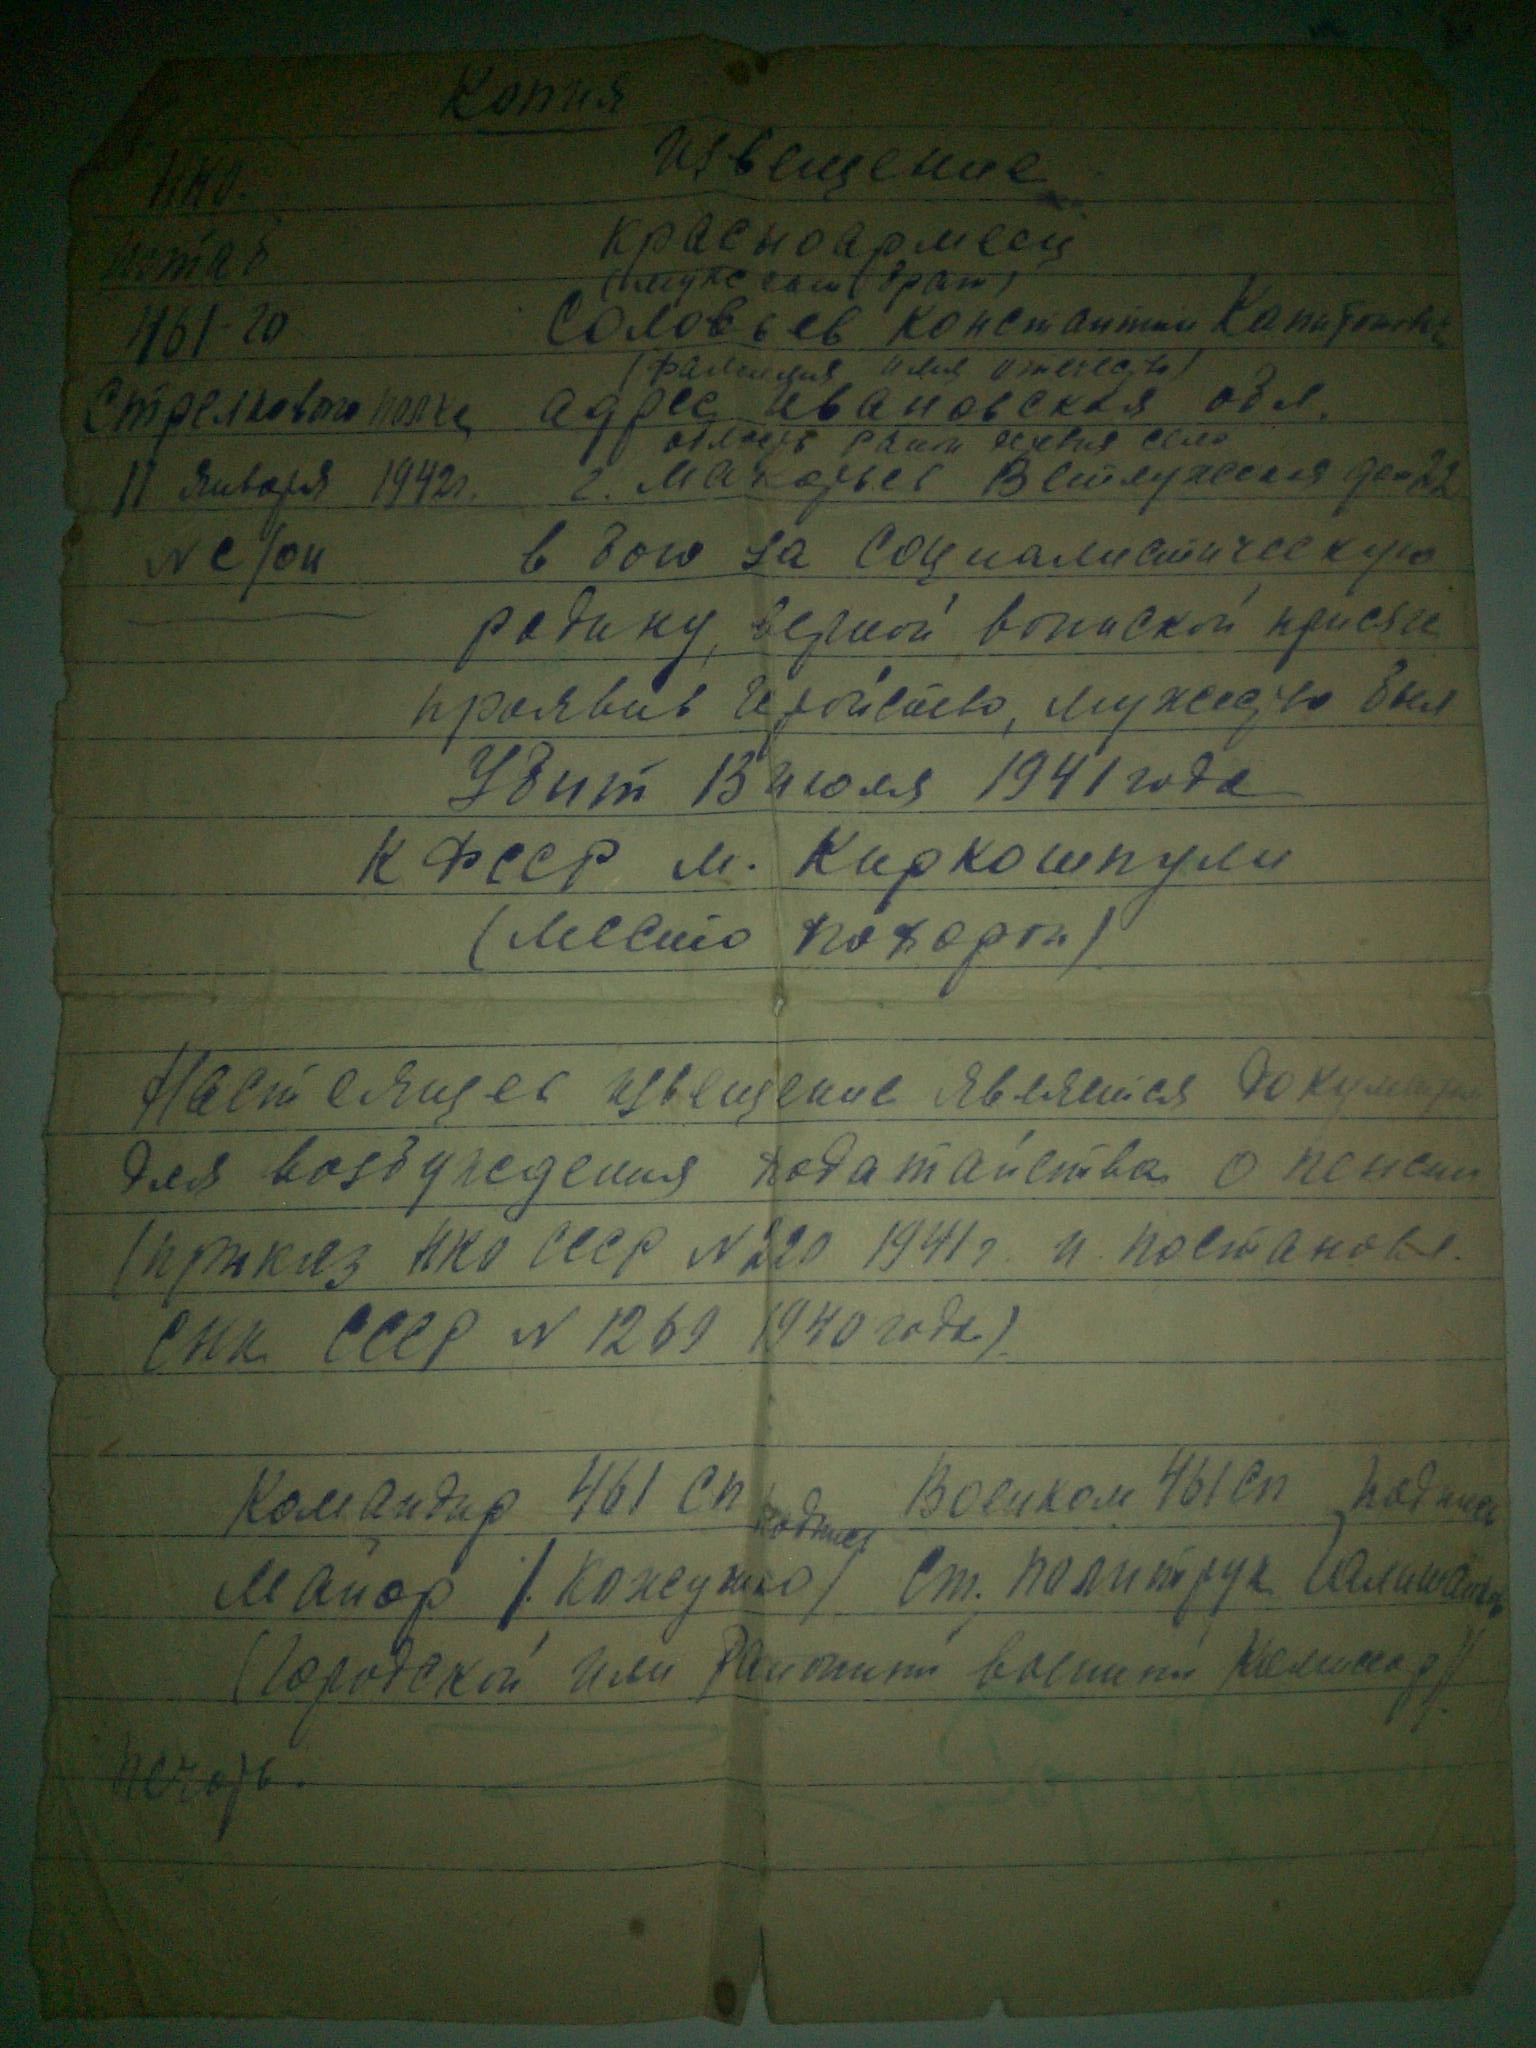 Копия
нко. извещение
штаб красноармеец
(муж сын брат)
461-го Соловьев Константин Капитонович
(фамилия имя отчество)
Стрелкового полка адрес Ивановская обл.
область район деревня село
11 января 1942г. г. Макарьев Ветлужская дом 22
в бою за социалистическую
родину, верной воинской присяге
проявив геройство, мужество был
Убит 13 июля 1941 года
К ФССР м. Киркошпули
(место похорон)
Настоящее извещение является документом
для возбуждения ходатайства о пенсии
(приказ нко СССР N 220 1941г. и постановл.
СНК СССР N 1269 1940 года)
Командир 461 СП подпись Военком 461 СП подпись
Майор /. Кожушко/ Ст. политрук
(городской или Районный военный комиссар)
печать.